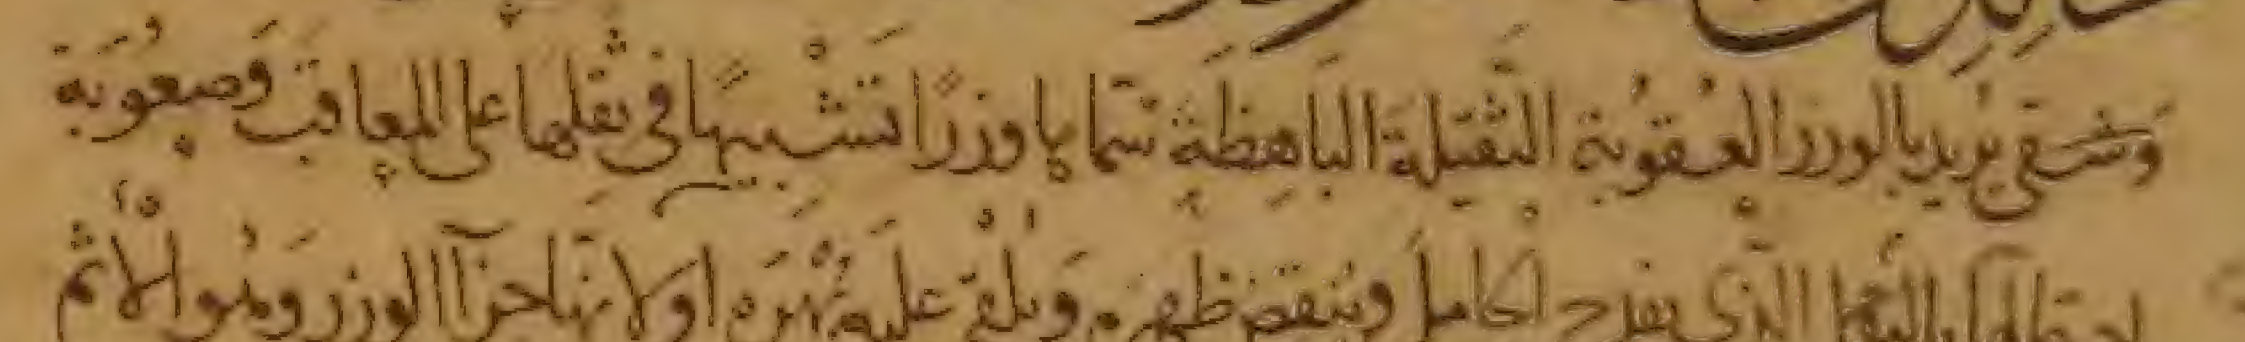 وَشقى يُريد بالوزر العُقوُبة الثَّقيلَة البَاهِظةَ سمّاها وِزرًا تَشْبيهًا فى ثقلها على المعاقَب وَصعُوبَة
احتمالها بالثقل الذى يفدح الحاملَ وينقض ظهره وَيلقى عليه بُهْرَه اولانّها جزآ الوزر وَهُو الْاثم